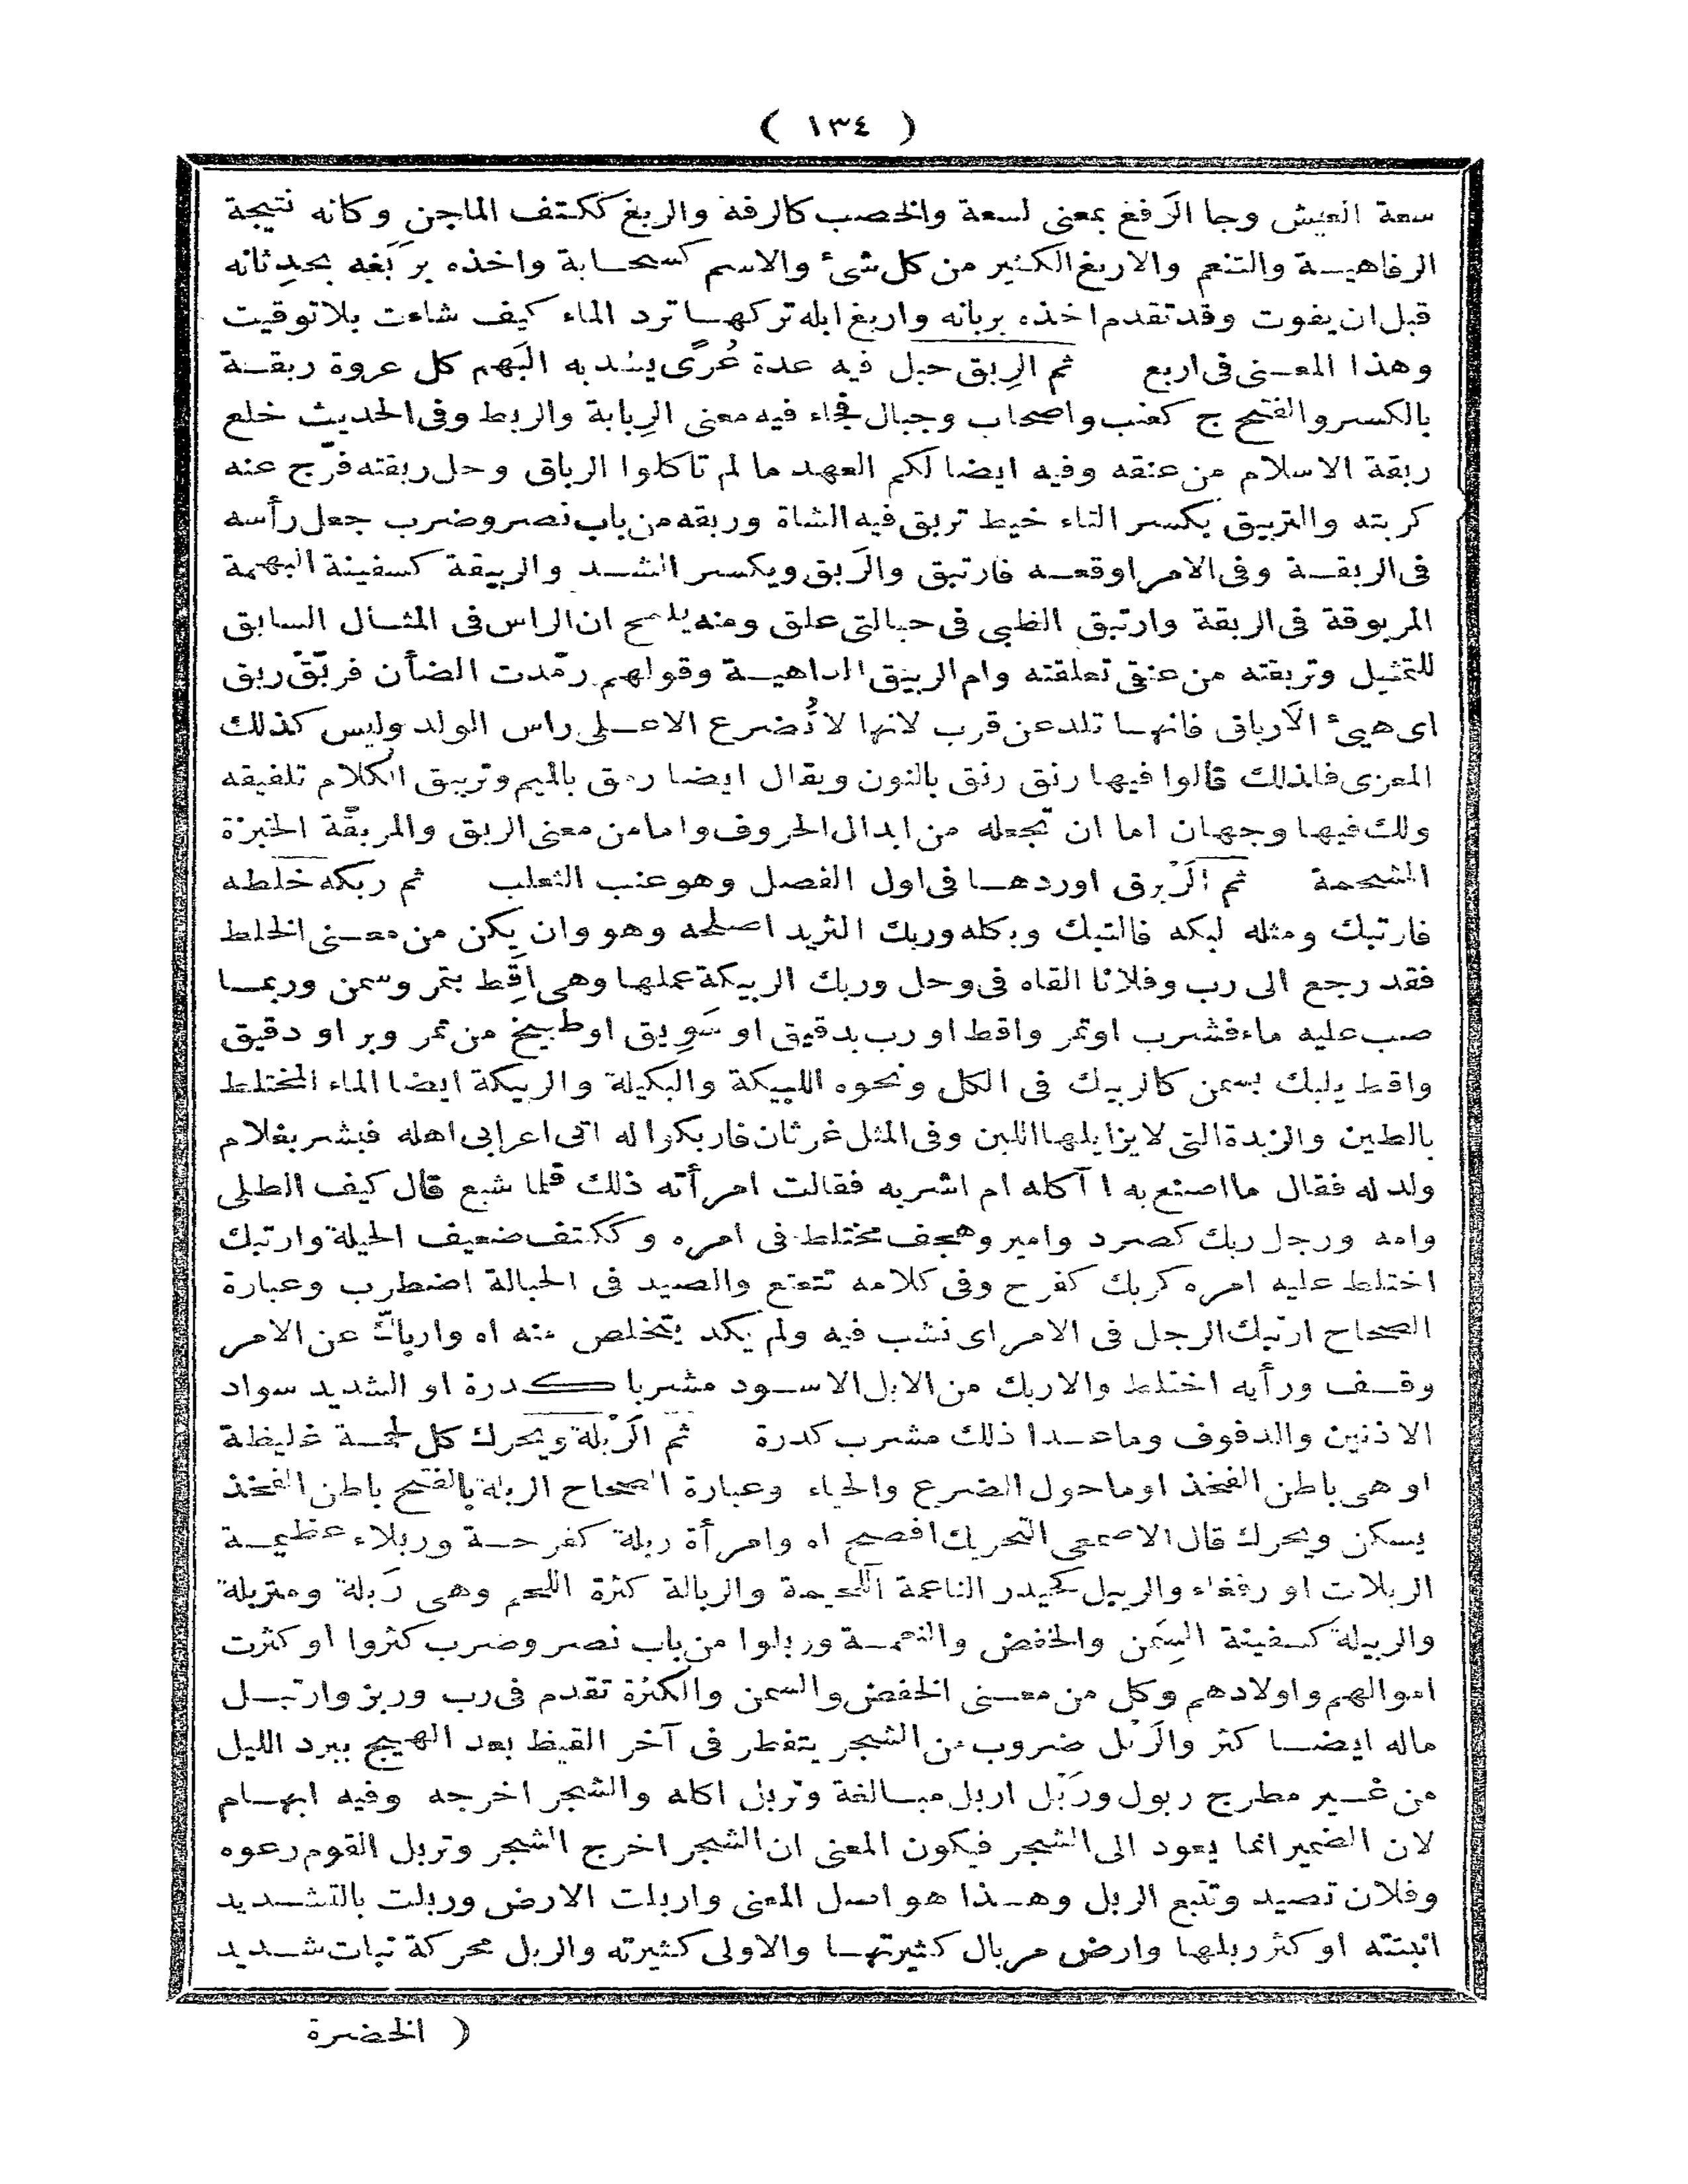 ( ١٣٤ )
سعة العيش وجا الرَفغ بمعنى لسعة والخصب كالرفه والربغ ككتف الماجن وكانه نتيجة
الرفاهية والتنعم والاربغ الكثير من كل شئ والاسم كسحابة واخذه بربَغه بحدِثانه
قبل ان يفوت وقد تقدم اخذه بربانه واربغ ابله تركها ترد الماء كيف شاءت بلا توقيت
وهذا المعنى فى اربع ثم الرِبق حبل فيه عدة عُرًى يشد به البَهم كل عروة ربقة
بالكسر والفتح ج كعنب واصحاب وجبال فجاء فيه معنى الرِبابة والربط وفى الحديث خلع
ربقة الاسلام من عنقه وفيه ايضا لكم العهد ما لم تاكلوا الرباق وحل ربقته فرّج عنه
كربته والتربيق بكسر التاء خيط تربق فيه الشاة وربقه من باب نصر وضرب جعل رأسه
فى الربقة وفى الامر اوقعه فارتبق والرَبق ويكسر الشد والربيقة كسفينة البهمة
المربوقة فى الربقة وارتبق الظبي فى حبالتى علق ومنه يلمح ان الراس فى المثال السابق
للتمثيل وتربقته من عنقى تعلقته وام الربيق الداهية وقولهم رمّدت الضأن فربّق ربق
اى هيئ الاَرباق فانها تلد عن قرب لانها لا تُضرع الا على راس الولد وليس كذلك
المعزى فلذلك قالوا فيها رنق رنق بالنون ويقال ايضا رمق بالميم وتربيق الكلام تلفيقه
ولك فيها وجهان اما ان تجعله من ابدال الحروف واما من معنى الربق والمربقّة الخبزة
المشحمة ثم الرَبْرق اوردها فى اول الفصل وهو عنب الثعلب ثم ربكه خلطه
فارتبك ومثله لبكه فالتبك وبكله وربك الثريد اصلحه وهو وان يكن من معنى الخلط
فقد رجع الى رب وفلانا القاه فى وحل وربك الربيكة عملها وهى اَقِط بتمر وسمن وربما
صب عليه ماء فشرب او تمر واقط او رب بدقيق او سَوِيق او طبيخ من تمر وبر او دقيق
واقط يلبك بسمن كالربيك فى الكل ونحوه اللبيكة والبكيلة والربيكة ايضا الماء المختلط
بالطين والزبدة التى لا يزايلها اللبن وفى المثل غرثان فاربكوا له اتى اعرابى اهله فبشر بغلام
ولد له فقال ما اصنع به ا آكله ام اشربه فقالت امرأته ذلك فلما شبع قال كيف الطلى
وامه ورجل ربك كصرد وامير وهجف مختلط فى امره وككتف ضعيف الحيلة وارتبك
اختلط عليه امره كربك كفرح وفى كلامه تتعتع والصيد فى الحبالة اضطرب وعبارة
الصحاح ارتبك الرجل فى الامر اى نشب فيه ولم يكد يتخلص منه اه وارباكّ عن الامر
وقف ورأيه اختلط والاربك من الابل الاسود مشربا كدرة او الشديد سواد
الاذنين والدفوف وما عدا ذلك مشرب كدرة ثم الرَبْلة ويحرك كل لحمة غليظة
او هى باطن الفخذ او ما حول الضرع والحياء وعبارة الصحاح الربلة بالفتح باطن الفخذ
يسكن ويحرك قال الاصمعى التحريك افصح اه وامرأة ربلة كفرحة وربلاء عظيمة
الربلات او رفغاء والربيل كحيدر الناعمة اللحيمة والربالة كثرة اللحم وهى رَبلة ومتربلة
والربيلة كسفينة السِمَن والخفض والنعمة وربلوا من باب نصر وضرب كثروا او كثرت
اموالهم واولادهم وكل من معنى الخفض والسمن والكثرة تقدم فى رب وربز وارتبل
ماله ايضا كثر والرَبْل ضروب من الشجر يتفطر فى آخر القيظ بعد الهيج ببرد الليل
من غير مطر ج ربول ورَبْل اربل مبالغة وتربل اكله والشجر اخرجه وفيه ابهام
لان الضمير انما يعود الى الشجر فيكون المعنى ان الشجر اخرج الشجر وتربل القوم رعوه
وفلان تصيد وتتبع الربل وهذا هو اصل المعنى واربلت الارض وربلت بالتشديد
انبتته او كثر ربلها وارض مربال كثيرتها والاولى كثيرته والربل محركة نبات شديد
( الخضرة